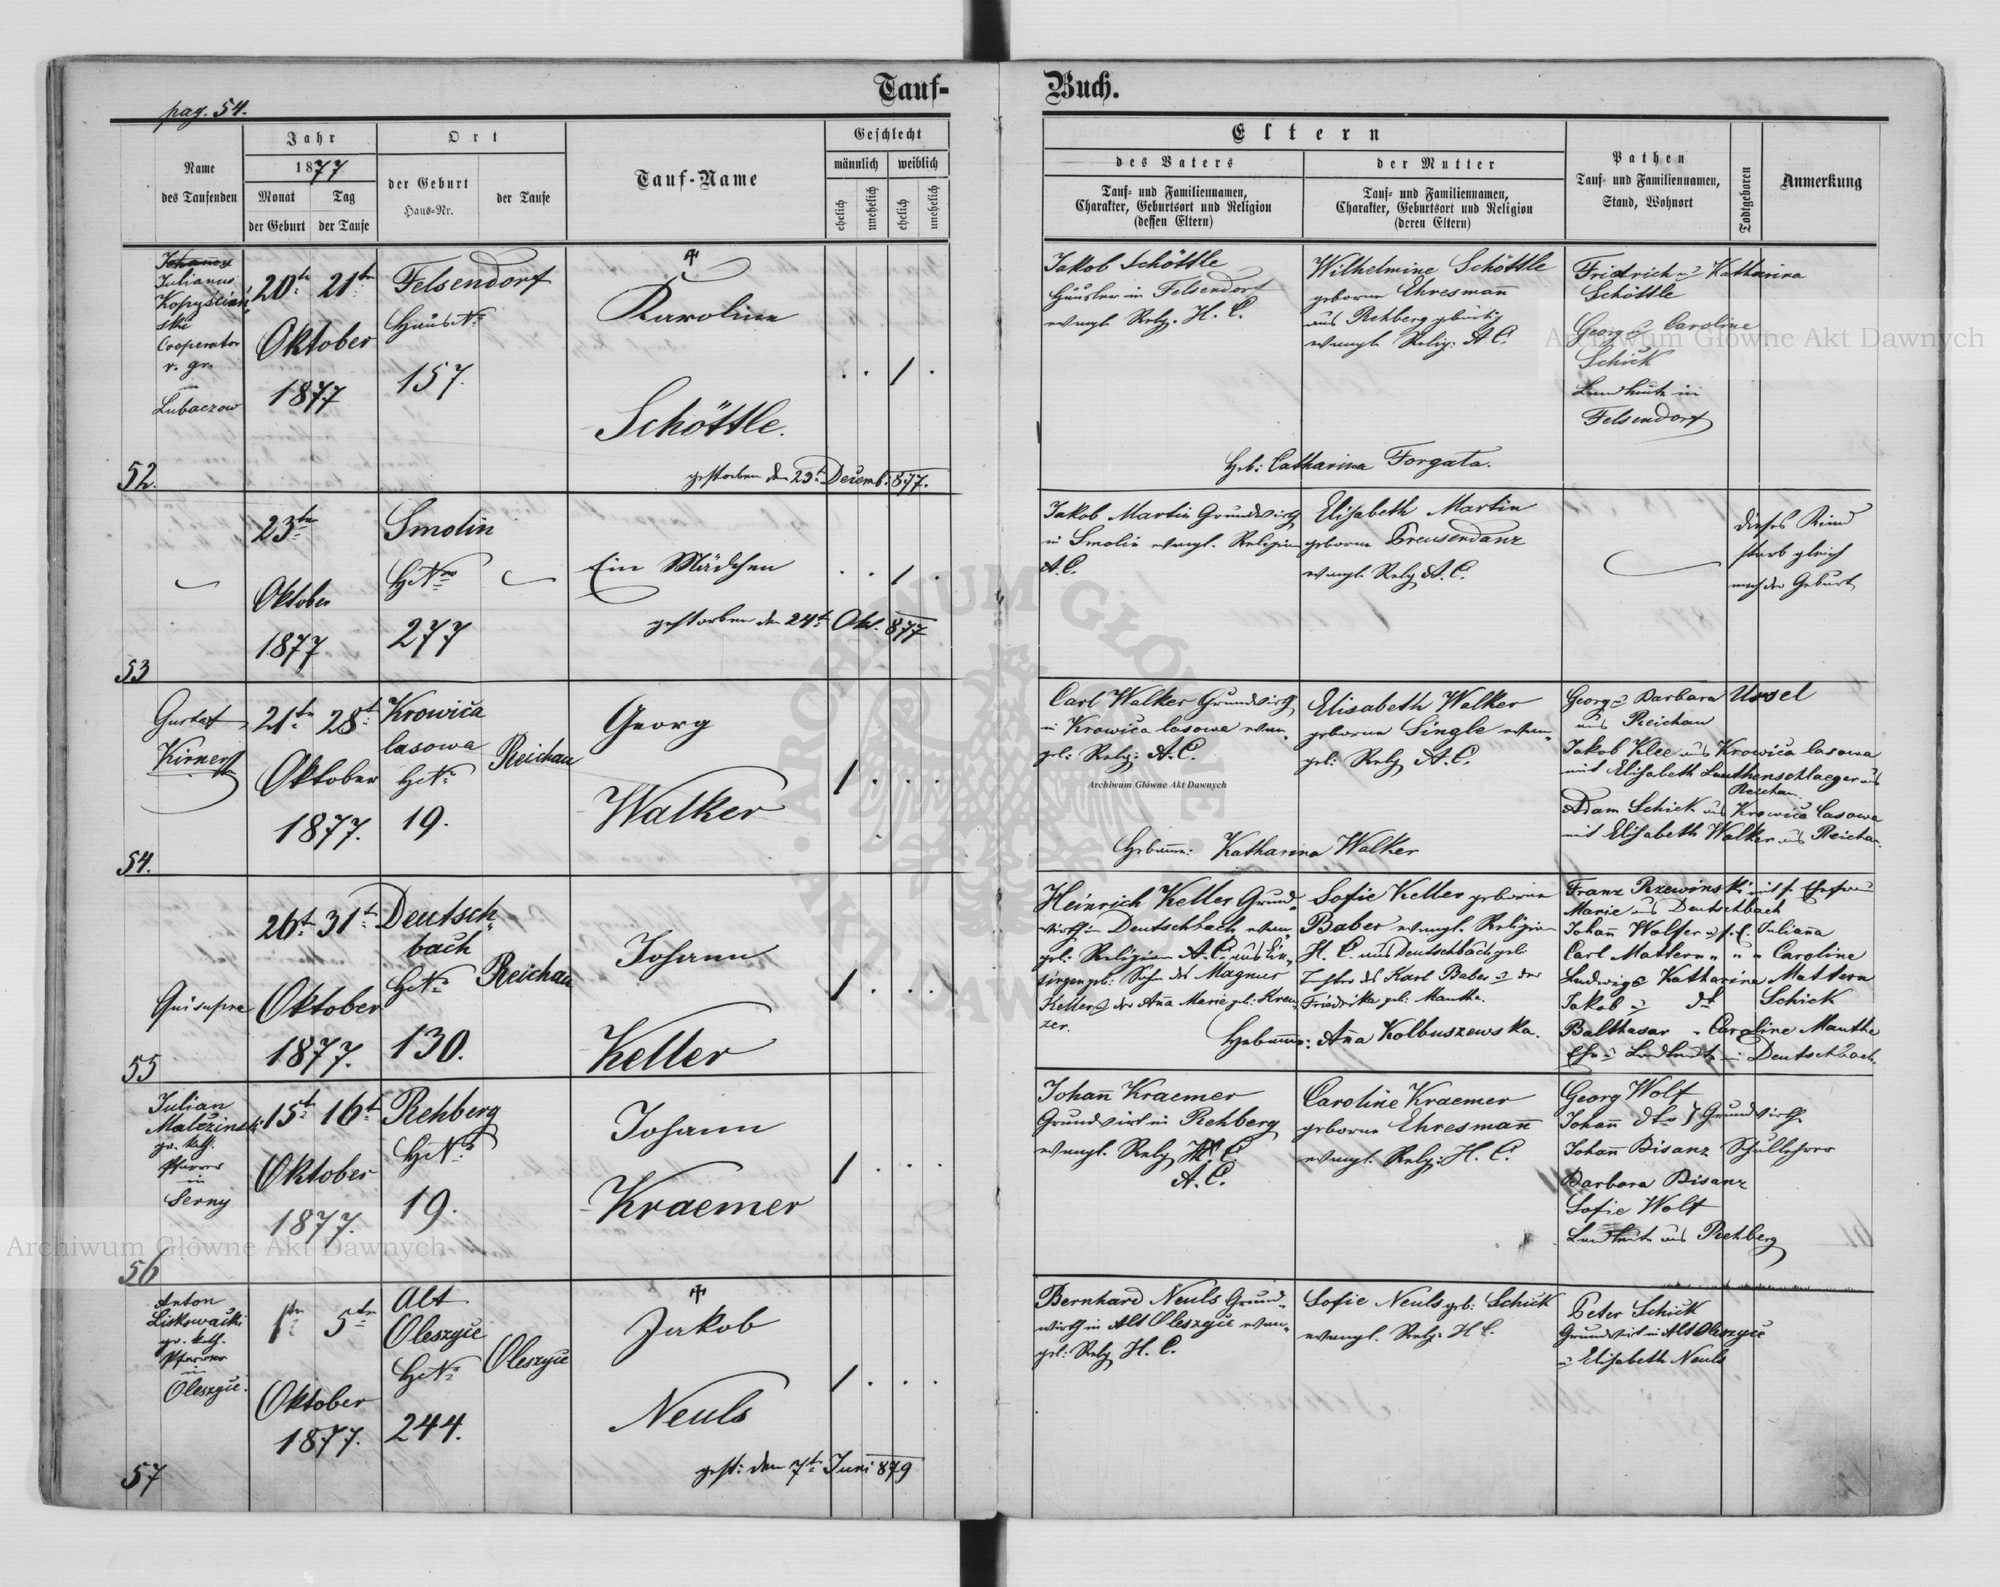 Tauf-
Buch.
pag. 54.
Name
des Taufenden
Jahr
1877
Monat
der Geburt
Tag
der Taufe
Ort
der Geburt
Haus-Nr.
der Taufe
Tauf-Name
Geschlecht
männlich
weiblich
ehelich
unehelich
ehelich
unehelich
Eltern
des Vaters
Tauf- und Familiennamen,
Charakter, Geburtsort und Religion
(dessen Eltern)
der Mutter
Tauf- und Familiennamen,
Charakter, Geburtsort und Religion
(deren Eltern)
Pathen
Tauf- und Familiennamen,
Stand, Wohnort
Todtgeboren
Anmerkung
52.
Julianus
Cooperator
r. gr.
in
Lubaczow
20tn 21tn
Oktober
1877
Felsendorf
Haus No
157.
Karoline
Schöttle.
gestorben den 29t Decemb. 877.
Jakob Schöttle
Häusler in Felsendorf
evangl. Relg. H. C.
Wilhelmine Schöttle
geborne Ehresmann
aus Rehberg gebürtig
evangl. Relig: A. C.
Fridrich u Katharina
Schöttle
Georg u Caroline
Schick
Landleute in
Felsendorf
Heb: Catharina Forgata.
53
23tn
Oktober
1877
Smolin
H No
277
Ein Mädchen
gestorben den 24t Okt. 877
Jakob Martin Grundwirth
in Smolin evangl. Religion
A. C.
Elisabeth Martin
geborne Freusendanz
evangl. Relg A. C.
dieses Kind
starb gleich
nach der Geburt
54.
Gustaf
21tn 28t
Oktober
1877.
Krowica
lasowa
H No
19.
Reichau
Georg
Walker
Carl Walker Grundwirth
in Krowica lasowa evan-
gel: Relg: A. C.
Elisabeth Walker
geborne Single evan-
gel: Relg A. C.
Georg u Barbara Ussel
aus Reichau
Jakob Klee aus Krowica lasowa
mit Elisabeth Lauthenschlaeger aus
Reichau
Adam Schick aus Krowica lasowa
mit Elisabeth Walker aus Reichau.
Hebamme: Katharina Walker
55
Qui supra
26t 31t
Oktober
1877.
Deutsch-
bach
H No
130.
Reichau
Johann
Keller
Heinrich Keller Grund-
wirth in Deutschbach evan-
gel: Religion A. C. aus
Sohn des Magnus
Keller u der Anna Marie geb: Kreu-
zer.
Sofie Keller geborne
Baber evangl. Religion
H. C. aus Deutschbach geb:
Tochter des Karl Baber u der
Friedrika geb: Manthe.
Franz Rzewinski mit s. Ehefrau
Marie aus Deutschbach
Johann Wolfer u s. E. Julianna
Carl Mattern " " " Caroline
Ludwig u Katharina Mattern
Jakob u dt Schick
Balthasar " Caroline Manthe
Landleute in Deutschbach.
Hebamme: Anna Kolbuszewska.
56
Julian
gr. kath.
Pfarrer
in
Serny
15t 16t
Oktober
1877.
Rehberg
H No
19.
Johann
Kraemer
Johann Kraemer
Grundwirt in Rehberg
evangl. Relg H. C.
A. C.
Caroline Kraemer
geborne Ehresmann
evangl. Relg: H. C.
Georg Wolf
Johann dto } Grundwirth
Johann Bisanz Schullehrer
Barbara Bisanz
Sofie Wolf
Landleute aus Rehberg
57
Anton
Liskowacki
gr. kath.
Pfarrer
in
Oleszyce.
1tn 5tn
Oktober
1877.
Alt
Oleszyce
H No
244.
Oleszyce
Jakob
Neuls
gest: den 7t Juni 879
Bernhard Neuls Grund-
wirth in Alt Oleszyce evan-
gel: Relg H. C.
Sofie Neuls geb: Schick
evangl. Relg: H C.
Peter Schick
Grundwirt in Alt Oleszyce
u Elisabeth Neuls
Archiwum Główne Akt Dawnych
Archiwum Główne Akt Dawnych
Archiwum Główne Akt Dawnych
ARCHIWUM GŁÓWNE AKT DAWNYCH